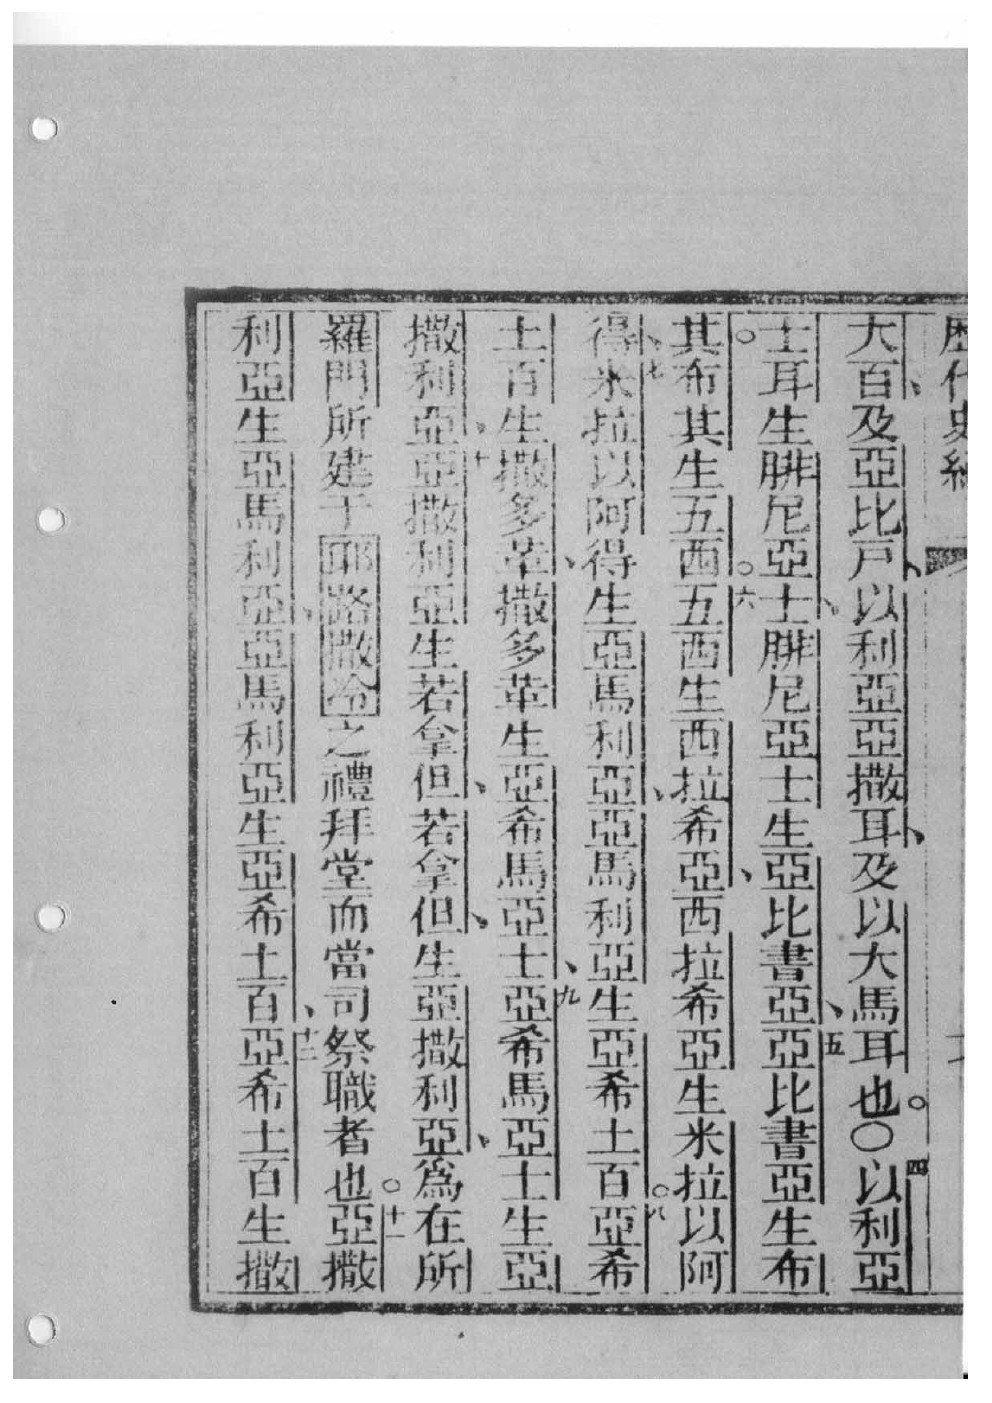 歷代史紀
大百、及亞比戸、以利亞亞撒耳、及以大馬耳也。〇四以利亞
士耳生腓尼亞士、腓尼亞士生亞比書亞、五亞比書亞生布
其。布其生五西。六五西生西拉希亞、西拉希亞生米拉以阿
得、七米拉以阿得生亞馬利亞、亞馬利亞生亞希土百。八亞希
土百生撒多革、撒多革生亞希馬亞士、九亞希馬亞士生亞
撒利亞、十亞撒利亞生若拿但、若拿但生亞撒利亞、爲在所
羅門所建于耶路撒冷之禮拜堂而當司祭職者也。十一亞撒
利亞生亞馬利亞、亞馬利亞生亞希土百、十二亞希土百生撒